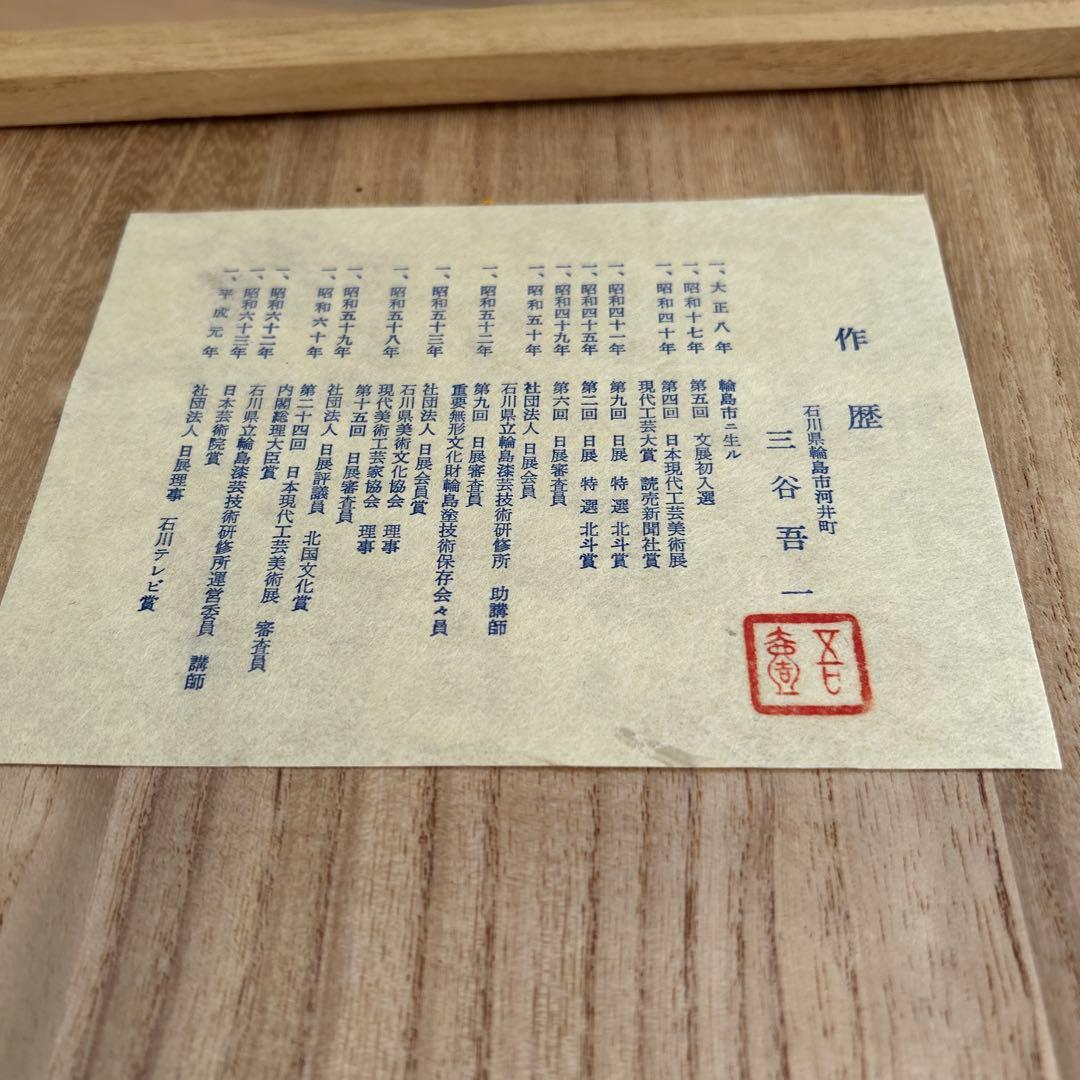 作歴
石川県輪島市河井町
三谷吾一
一、大正八年 輪島市ニ生ル
一、昭和十七年 第五回 文展初入選
一、昭和四十年 第四回 日本現代工芸美術展
現代工芸大賞 読売新聞社賞
一、昭和四十一年 第九回 日展 特選 北斗賞
一、昭和四十五年 第二回 日展 特選 北斗賞
一、昭和四十九年 第六回 日展審査員
一、昭和五十年 社団法人 日展会員
石川県立輪島漆芸技術研修所 助講師
一、昭和五十二年 第九回 日展審査員
重要無形文化財輪島塗技術保存会々員
一、昭和五十三年 社団法人 日展会員賞
石川県美術文化協会 理事
一、昭和五十八年 現代美術工芸家協会 理事
第十五回 日展審査員
一、昭和五十九年 社団法人 日展評議員 北国文化賞
一、昭和六十年 第二十四回 日本現代工芸美術展 審査員
内閣総理大臣賞
一、昭和六十二年 石川県立輪島漆芸技術研修所運営委員 講師
一、昭和六十三年 日本芸術院賞
一、平成元年 社団法人 日展理事 石川テレビ賞